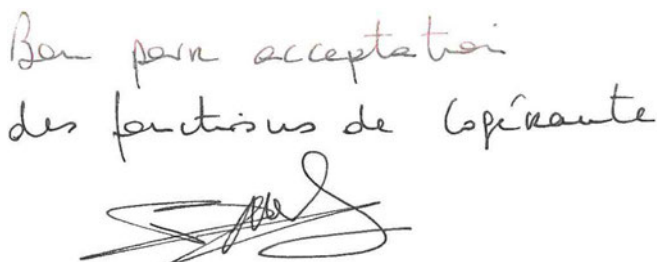 Bon pour acceptation
des fonctions de Cogérante